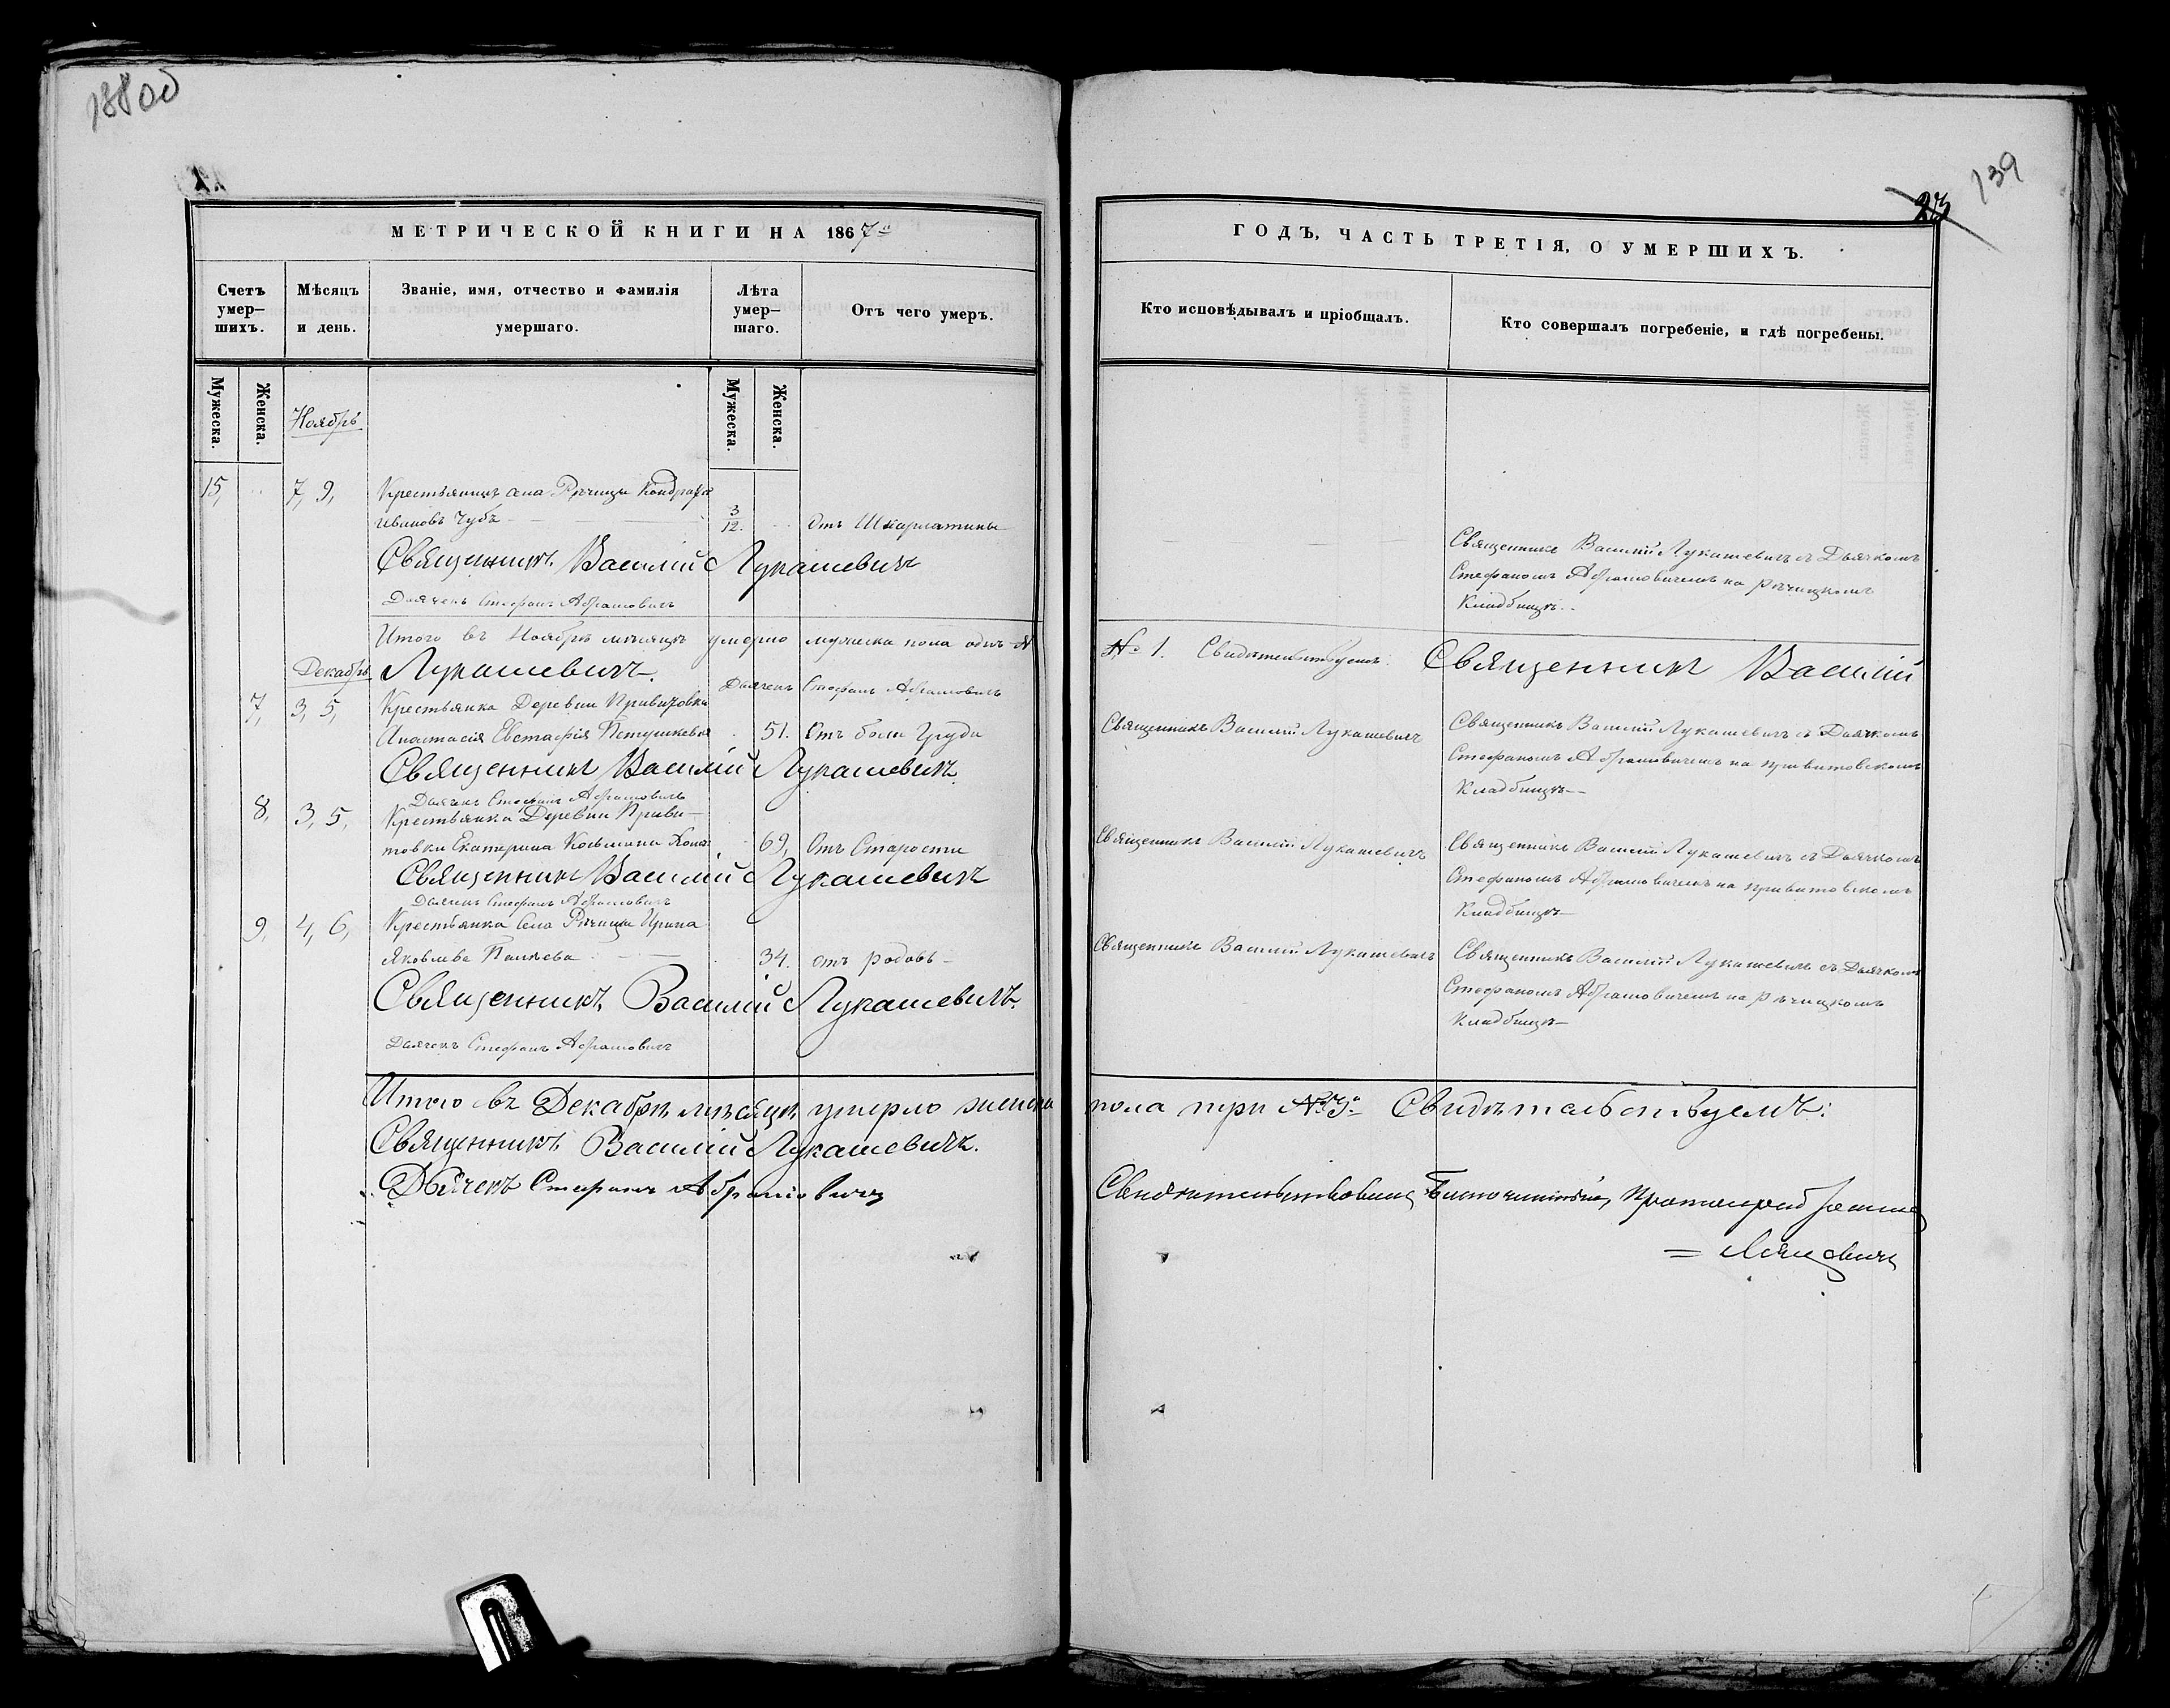 138 об
139
23
МЕТРИЧЕСКОЙ КНИГИ НА 1867й
Счетъ умер—шихъ.
Мѣсяцъ и день.
Званіе, имя, отчество и фамилія умершаго.
Лѣта умер—шаго.
Отъ чего умеръ.
Мужеска.
Женска.
Мужеска.
Женска.
Ноябрь
15, 7, 9, Крестьянинъ села Рѣчицы Кондратъ
Ивановъ Чубъ 3/12. Отъ Шкарлатины
Священникъ Василий Лукашевичъ
Дьячекъ Стефанъ Абрамовичъ
Итого въ Ноябрѣ мѣсяцѣ умерло мужеска пола одинъ
Декабрь Лукашевичъ.
Дьячекъ Стефанъ Абрамовичъ
7, 3, 5, Крестьянка Деревни Привитовки
Анастасія Евстафія 51. Отъ боли Груди
Священникъ Василій Лукашевичъ
Дьячекъ Стефанъ Абрамовичъ
8, 3, 5, Крестьянка Деревни Приви—
товки Екатерина Косьмина 69, Отъ Старости
Священникъ Василій Лукашевичъ
Дьячекъ Стефанъ Абрамовичъ
9, 4, 6, Крестьянка Села Рѣчицы Ирина
Яковлева 34. отъ родовъ—
Священникъ Василій Лукашевичъ.
Дьячекъ Стефанъ Абрамовичъ
Итого въ Декабрѣ мѣсяцѣ умерло женска
Священникъ Василій Лукашевичъ.
Дьячекъ Стефанъ Абрамовичъ
ГОДЪ, ЧАСТЬ ТРЕТІЯ, О УМЕРШИХЪ.
Кто исповѣдывалъ и пріобщалъ.
Кто совершалъ погребеніе, и гдѣ погребены.
Священникъ Василій Лукашевичъ съ Дьячкомъ
Стефаномъ Абрамовичемъ на Рѣчицкомъ
Кладбищѣ.
№ 1. Свидѣтельствуемъ: Священникъ Василій
Священникъ Василій Лукашевичъ
Священникъ Василій Лукашевичъ съ Дьячкомъ
Стефаномъ Абрамовичемъ на привитовскомъ
Кладбищѣ—
Священникъ Василій Лукашевичъ
Священникъ Василій Лукашевичъ съ Дьячкомъ
Стефаномъ Абрамовичемъ на привитовскомъ
Кладбищѣ—
Священникъ Василій Лукашевичъ
Священникъ Василій Лукашевичъ съ Дьячкомъ
Стефаномъ Абрамовичемъ на Рѣчицкомъ
Кладбищѣ—
пола три №3. Свидѣтельствуемъ:
Благочинный, Протоіерей